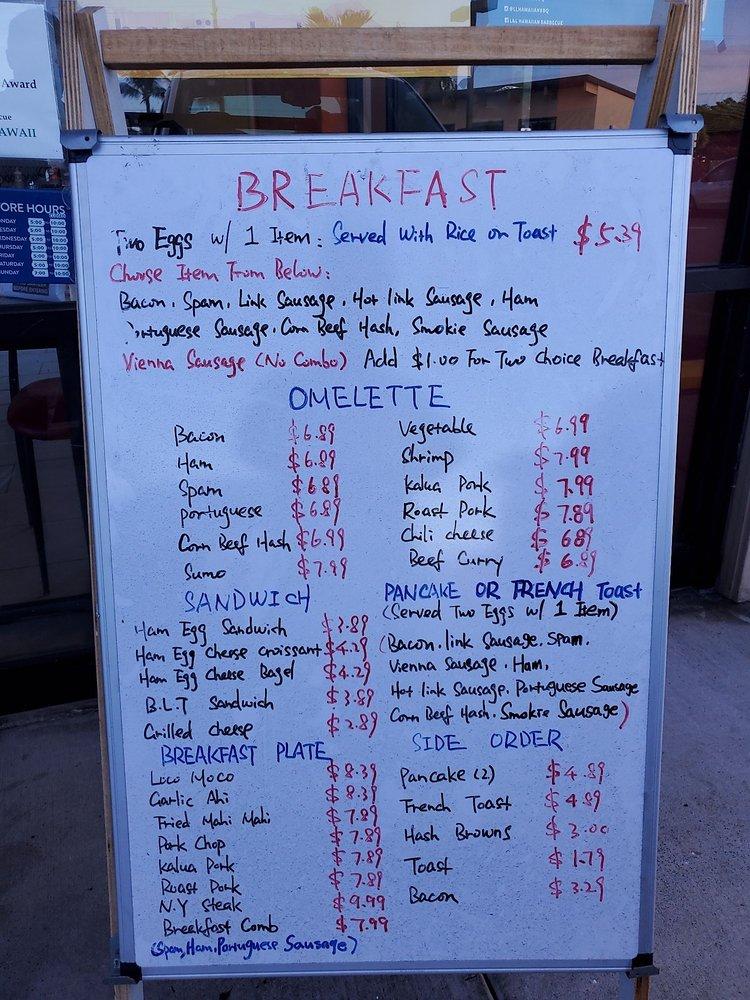 @LLHAWAIIANBBQ
L&L HAWAIIAN BARBECUE
Award
cue
HAWAII
ORE HOURS
BREAKFAST
Two Eggs w/ 1 Item: Served With Rice or Toast $5.39
Choose Item From Below:
Bacon, Spam, Link Sausage, Hot link Sausage, Ham
Portuguese Sausage, Corn Beef Hash, Smokie Sausage
Vienna Sausage (No Combo) Add $1.00 For Two Choice Breakfast
OMELETTE
Bacon $6.89
Ham $6.89
Spam $6.89
Portuguese $6.89
Corn Beef Hash $6.99
Sumo $7.99
Vegetable $6.99
Shrimp $7.99
Kalua Pork $7.99
Roast Pork $7.89
Chili cheese $6.89
Beef Curry $6.89
SANDWICH
Ham Egg Sandwich $3.89
Ham Egg Cheese croissant $4.29
Ham Egg Cheese Bagel $4.29
B.L.T Sandwich $3.89
Grilled cheese $2.89
PANCAKE OR FRENCH Toast
(Served Two Eggs w/ 1 Item)
(Bacon, link Sausage, Spam,
Vienna Sausage, Ham,
Hot link Sausage, Portuguese Sausage
Corn Beef Hash, Smokie Sausage)
BREAKFAST PLATE
Loco Moco $8.39
Garlic Ahi $8.39
Fried Mahi Mahi $7.89
Pork Chop $7.89
Kalua Pork $7.89
Roast Pork $7.89
N.Y Steak $9.99
Breakfast Comb $7.99
(Spam, Ham, Portuguese Sausage)
SIDE ORDER
Pancake (2) $4.89
French Toast $4.89
Hash Browns $3.00
Toast $1.79
Bacon $3.29